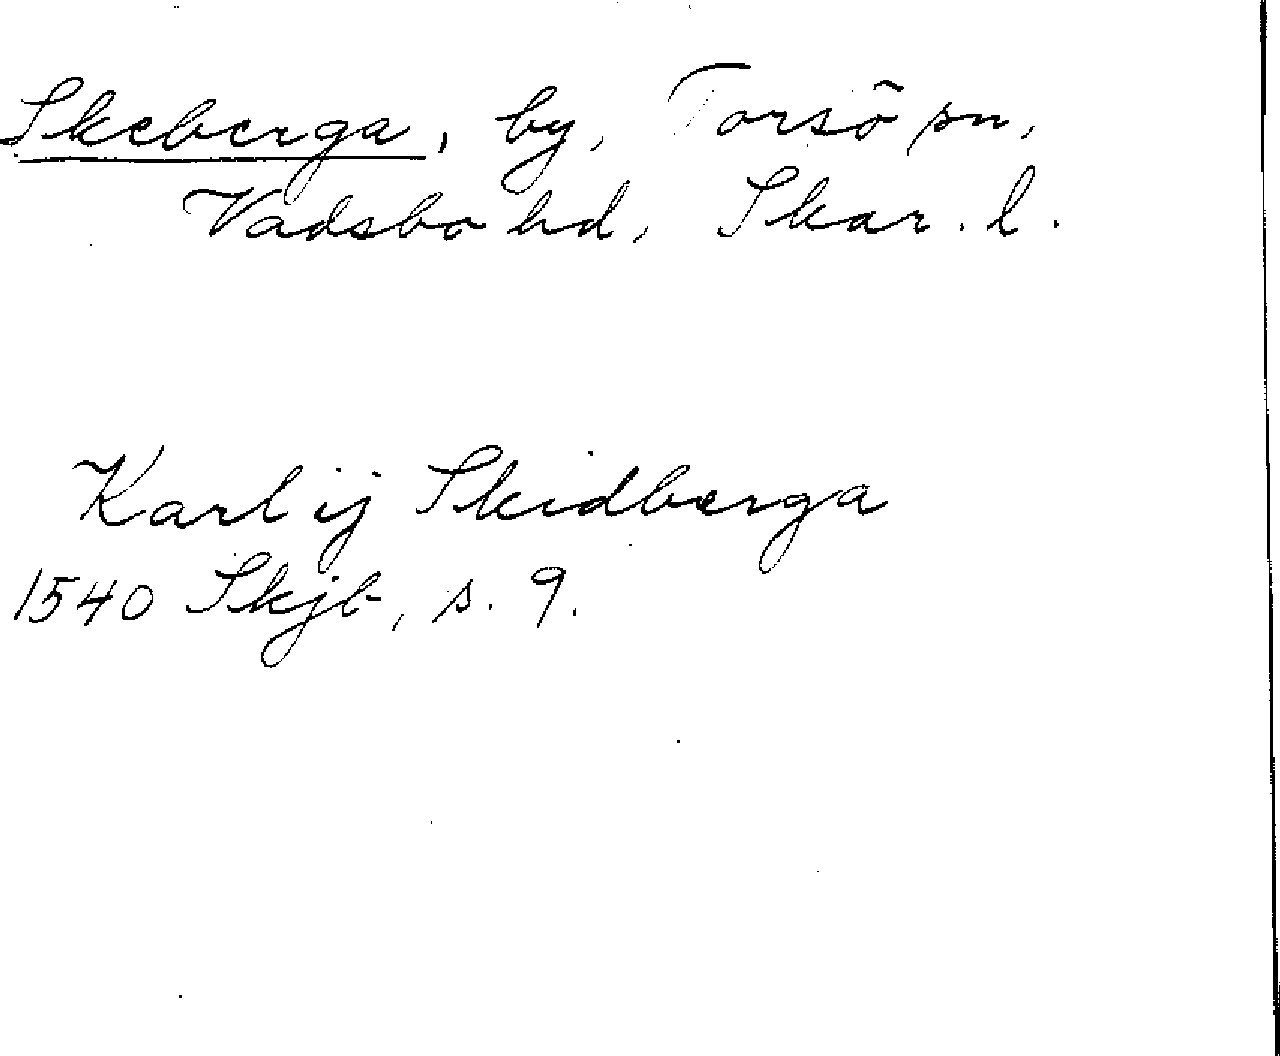 Skeberga, by, Torsö sn,
Vadsbo hd, Skar. l.
Karl ij Skidberga
1540 Skjb, s. 9.